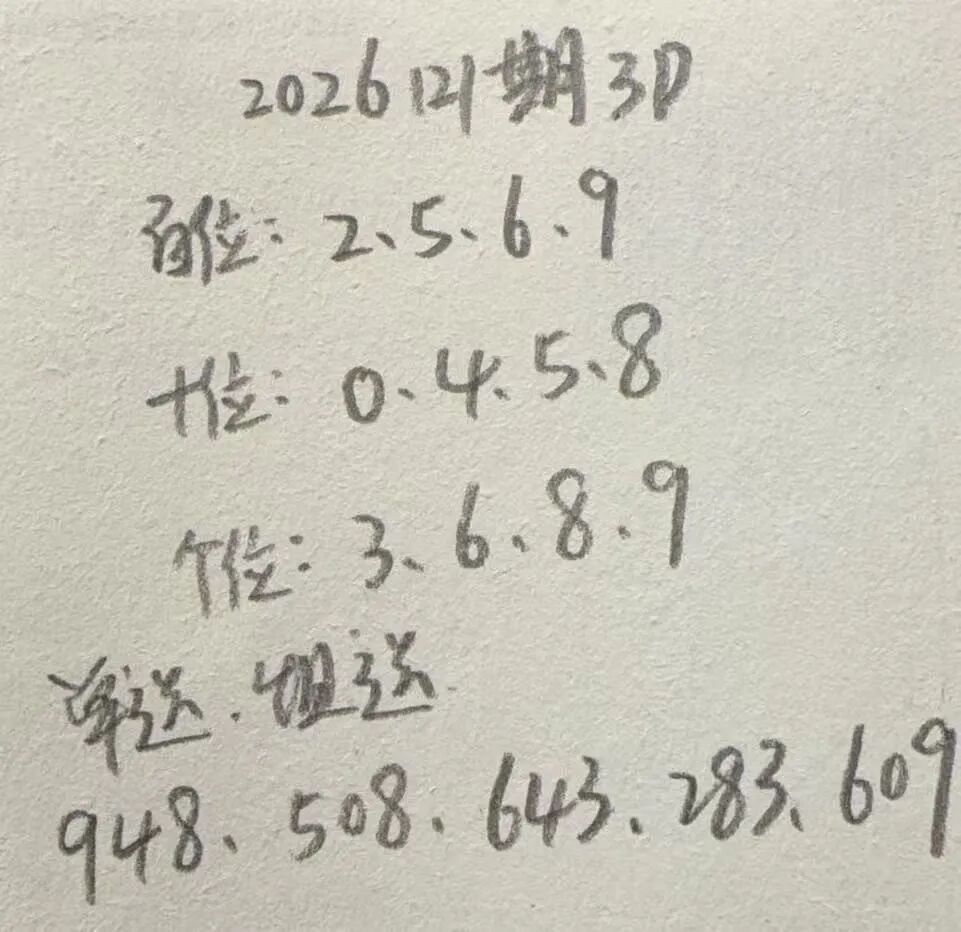 2026121期3D
百位：2、5、6、9
十位：0、4、5、8
个位：3、6、8、9
单送、组送
948、508、643、283、609